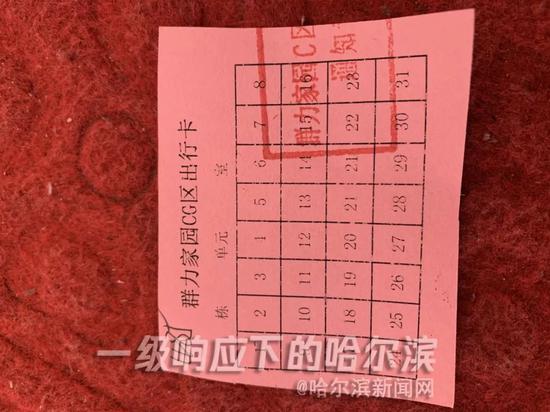 群力家园CG区出行卡
栋 单元 室
2 3 1 5 6 7 8
10 11 12 13 14 15 16
18 19 20 21 21 22 23
24 25 26 27 28 29 30 31
群力家园C区
通知
一级响应下的哈尔滨
@哈尔滨新闻网